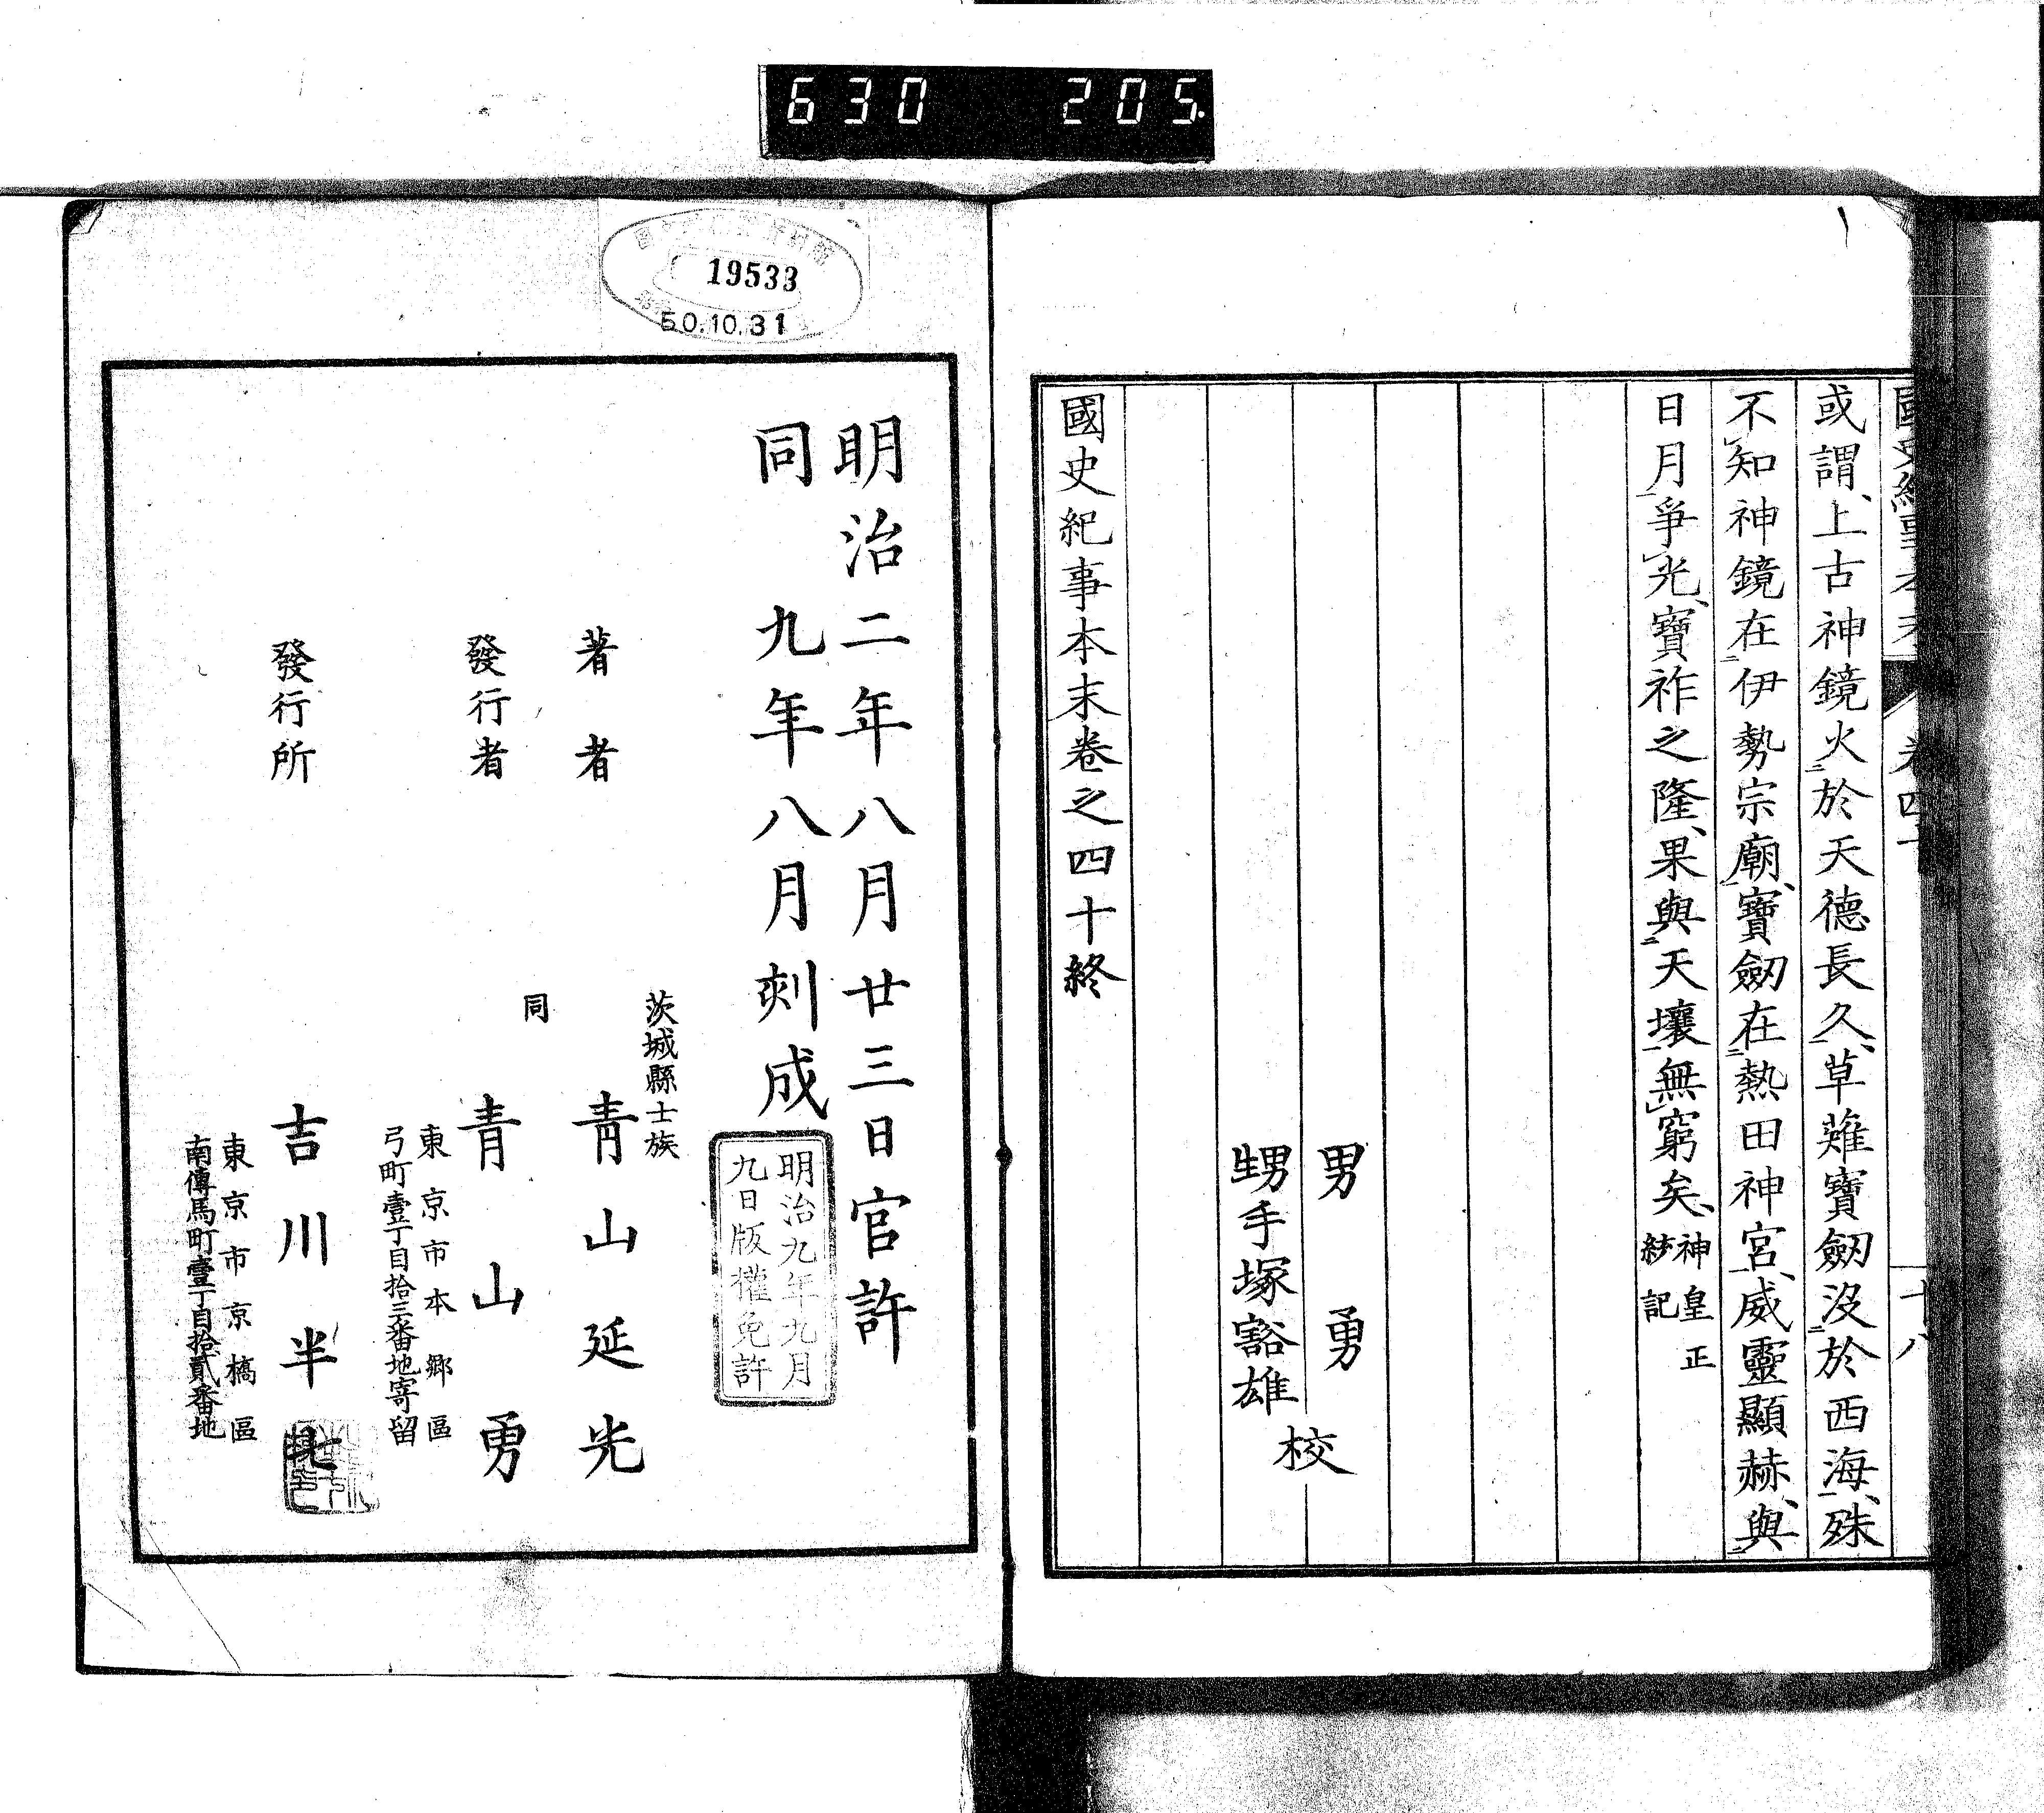 630 205
國史紀事本末 卷四十 十八
或謂、上古神鏡火於天德長久、草薙寶劔沒於西海、殊
不知神鏡在伊勢宗廟、寶劔在熱田神宮、威靈顯赫、與
日月爭光、寶祚之隆、果與天壤無窮矣、神皇正
紗記
男 勇
甥手塚豁雄
校
國史紀事本末卷之四十終
19533
50.10.31
明治二年八月廿三日官許
同 九年八月刻成
明治九年九月
九日版權免許
茨城縣士族
著者 靑山延光
同
發行者 靑山勇
東京市本鄉區
弓町壹丁目拾三番地寄留
發行所 吉川半七
東京市京橋區
南傳馬町壹丁目拾貳番地